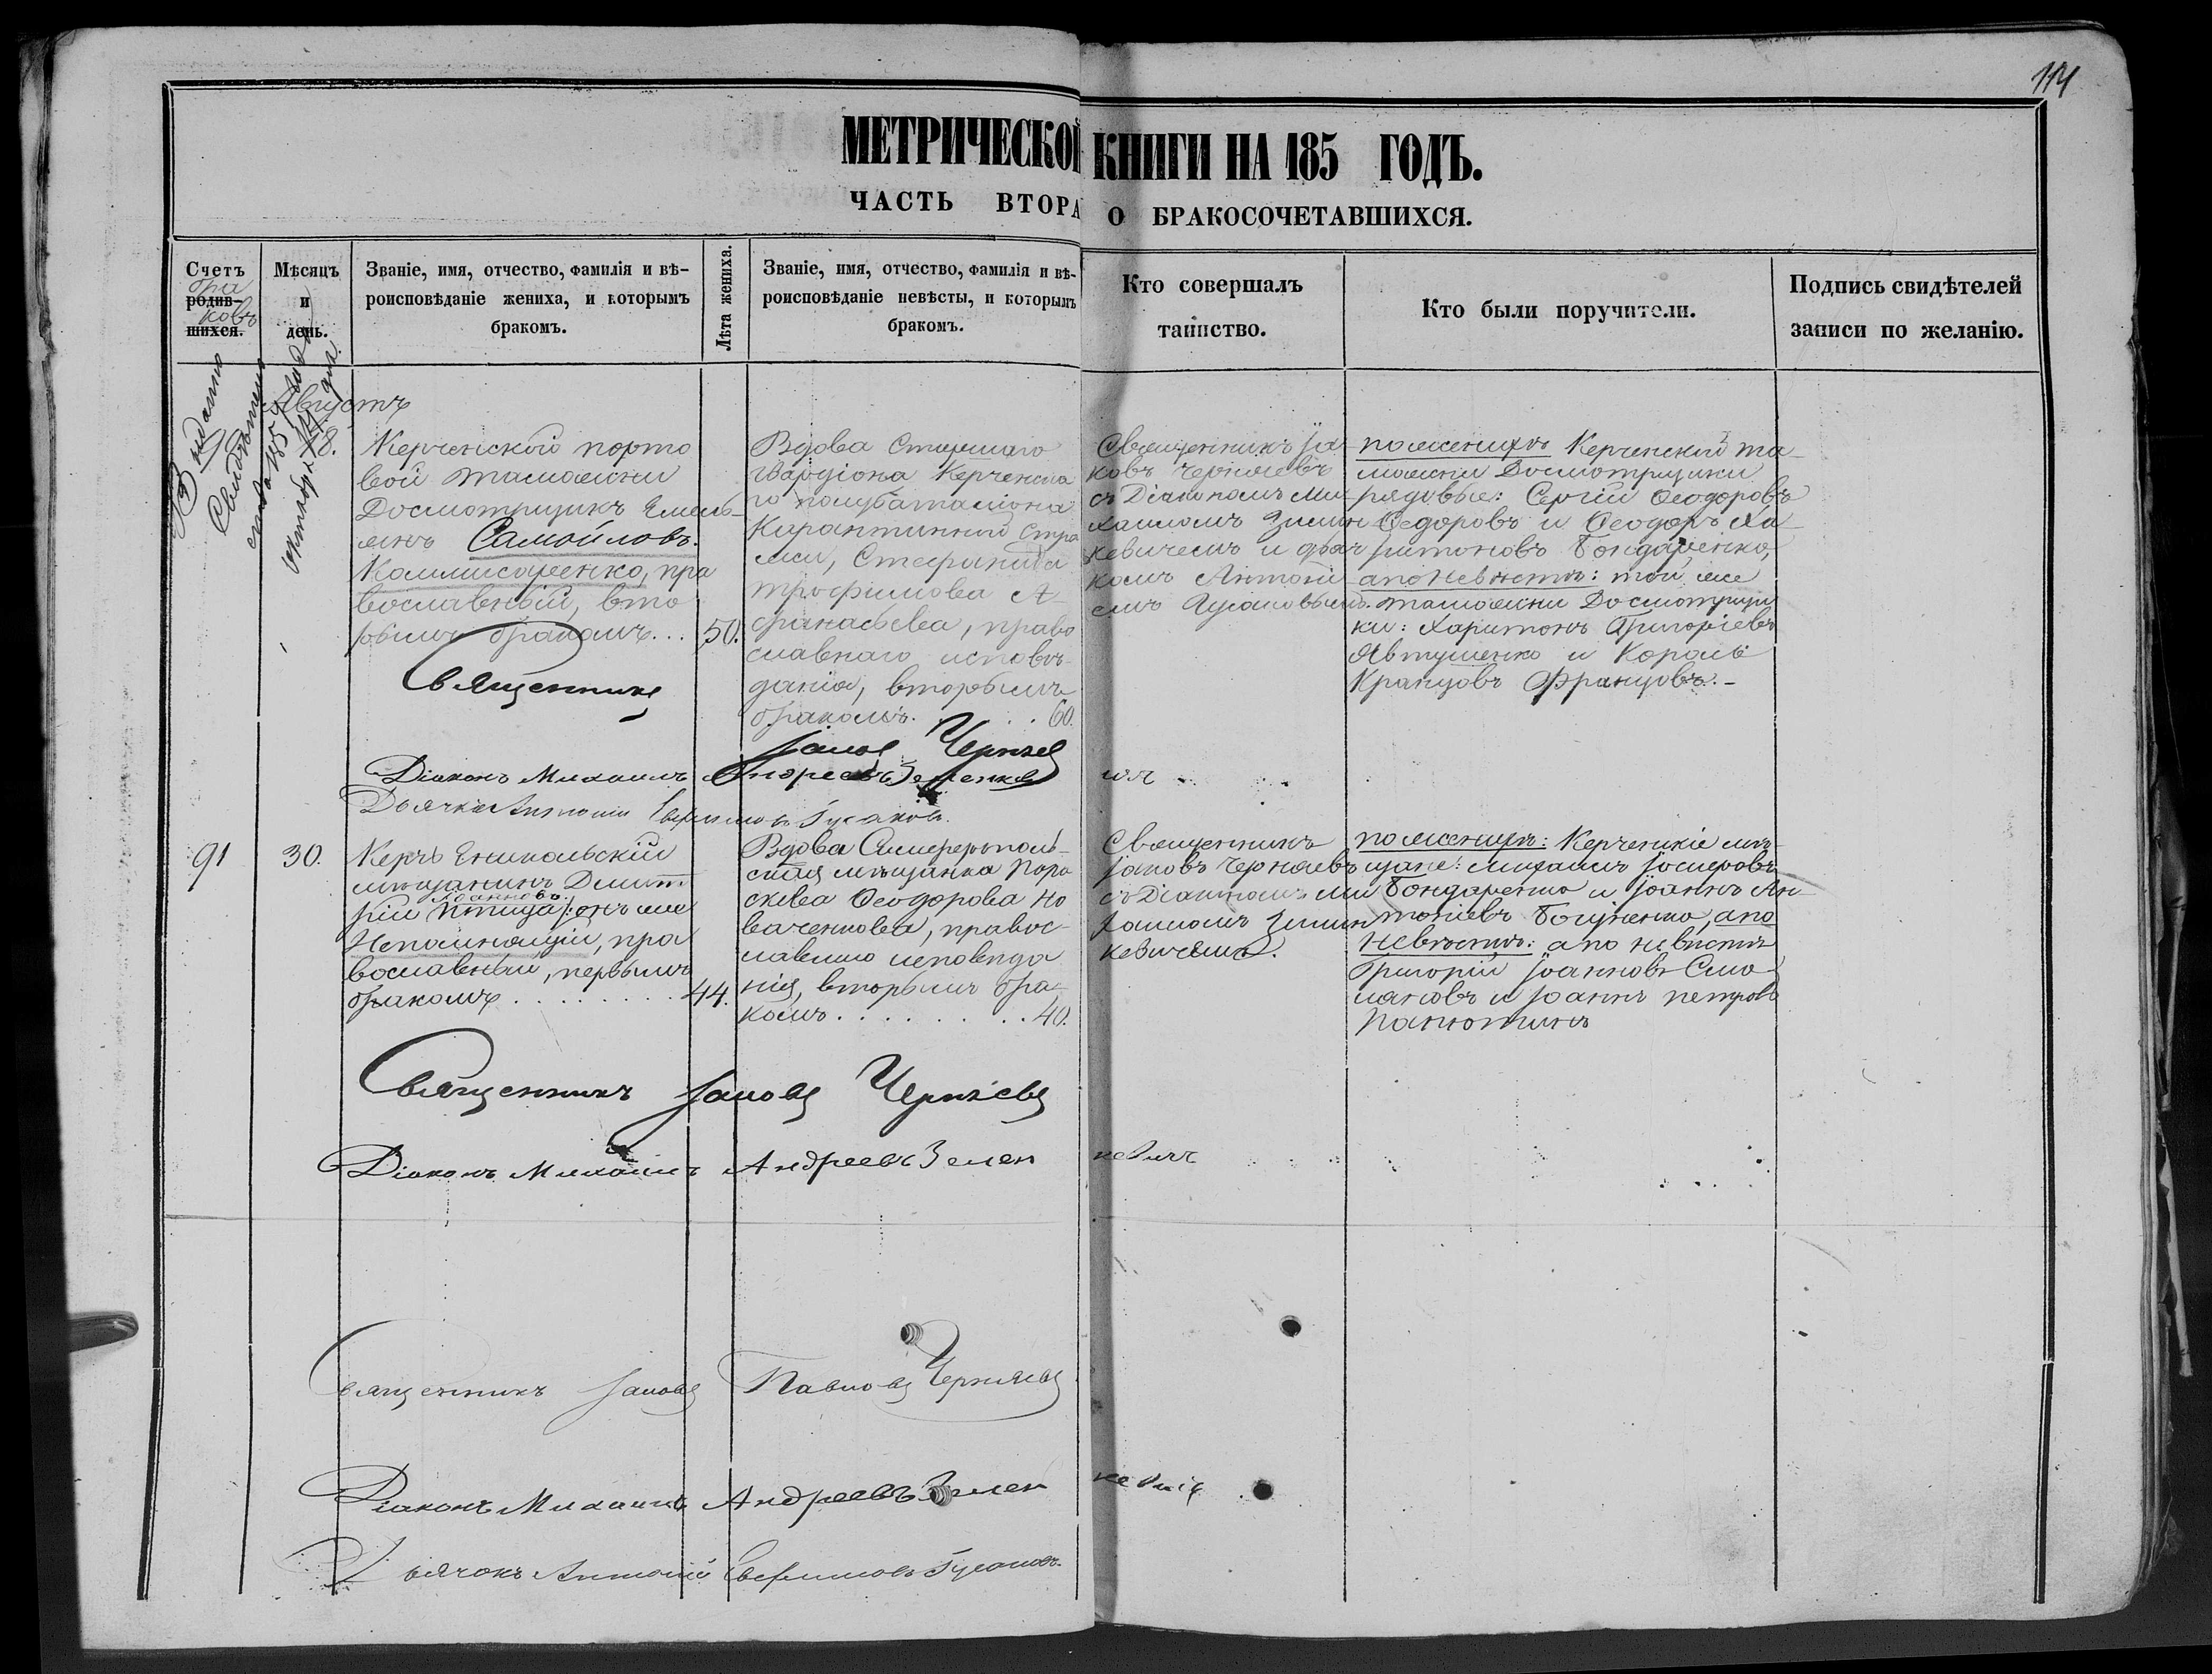 114
МЕТРИЧЕСКОЙ КНИГИ НА 185 ГОДЪ.
ЧАСТЬ ВТОРА О БРАКОСОЧЕТАВШИХСЯ.
Счетъ
родив-
шихся.
бра
ковъ
Мѣсяцъ
и
день.
Званіе, имя, отчество, фамилія и вѣ-
роисповѣданіе жениха, и которымъ
бракомъ.
Лѣта жениха.
Званіе, имя, отчество, фамилія и вѣ-
роисповѣданіе невѣсты, и которымъ
бракомъ.
Кто совершалъ
таинство.
Кто были поручители.
Подпись свидѣтелей
записи по желанію.
выдано
Августъ
18.
Керченской порто
вой таможни
Досмотрщикъ Емель-
янъ Самойловъ.
Коммисаренко, пра
вославный, вто
рымъ бракомъ... 50.
Вдова Старшаго
Вардіона Керченска
го полубаталіона
Карантинной Стра
жи, Стефанида
Трофимова А-
фанасьева, право
славнаго исповѣ-
данія, вторымъ
бракомъ. . . . 60.
Священникъ Іа
ковъ Черняевъ
съ Діакономъ Ми
хаиломъ Зелен
кевичемъ и дьяч
комъ Антоні
емъ Гусаковымъ.
по женихѣ Керченской та
можни Досмотрщики
рядовые: Сергій Ѳеодоровъ
Ѳедоровъ и Ѳеодоръ Ха
ритоновъ Бондаренко,
а по невѣстѣ: той же
таможни Досмотрщи
ки: Харитонъ Григоріевъ
Явтушенко и Король
Кранцовъ Францовъ.-
Священникъ Іаковъ Черняевъ
Діаконъ Михаилъ Андреевъ Зеленкевичъ
Дьячекъ Антоній Евфимовъ Гусаковъ.
91
30.
Керчь Еникальскій
мѣщанинъ Димит
рій Птица /: онъ же
Іоанновъ
Непомнющій, пра
вославный, первымъ
бракомъ . . . . . . . . 44.
Вдова Симферополь-
ская мѣщанка Пара
скева Ѳеодорова Но
ваченкова, правос-
лавнаго исповѣда
нія, вторымъ бра-
комъ . . . . . . . . 40.
Священникъ
Іаковъ Черняевъ
съ Діакономъ Ми
хаиломъ Зелен
кевичемъ.
по женихѣ: Керченскіе мѣ-
щане: Михаилъ Іосифовъ
Бондаренко и Іоаннъ Ан
тоніевъ Боцненко, а по
невѣстѣ: а по невѣстѣ
Григорій Іоанновъ Смо
ляковъ и Іоаннъ Петровъ
Панютинъ
Священникъ Іаковъ Черняевъ
Діаконъ Михаилъ Андреевъ Зеленкевичъ
Священникъ Іаковъ Павловъ Черняевъ
Діаконъ Михаилъ Андреевъ Зеленкевичъ
Дьячокъ Антоній Евфимовъ Гусаковъ.